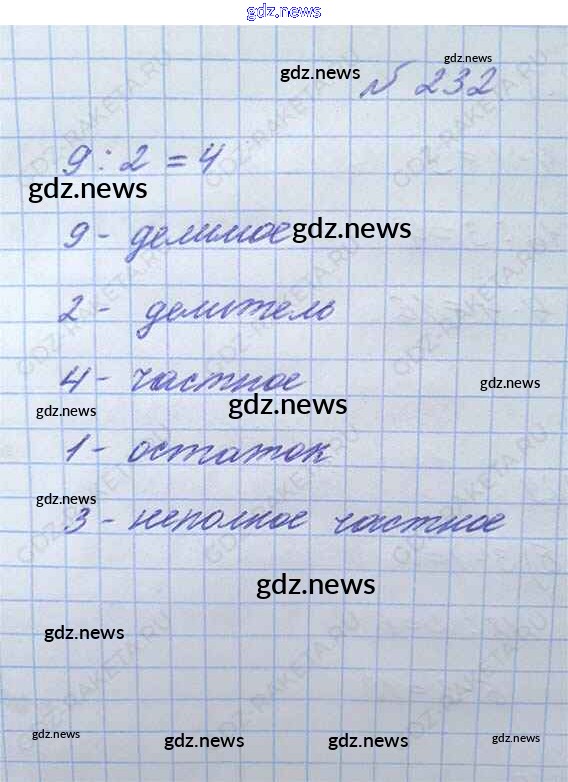 gdz.news
gdz.news
gdz.news
№ 232
9 : 2 = 4
gdz.news
9 - делимое
gdz.news
2 - делитель
4 - частное
gdz.news
gdz.news
gdz.news
1 - остаток
gdz.news
3 - неполное частное
gdz.news
gdz.news
gdz.news
gdz.news
gdz.news
gdz.news
GDZ-RAKETA.RU